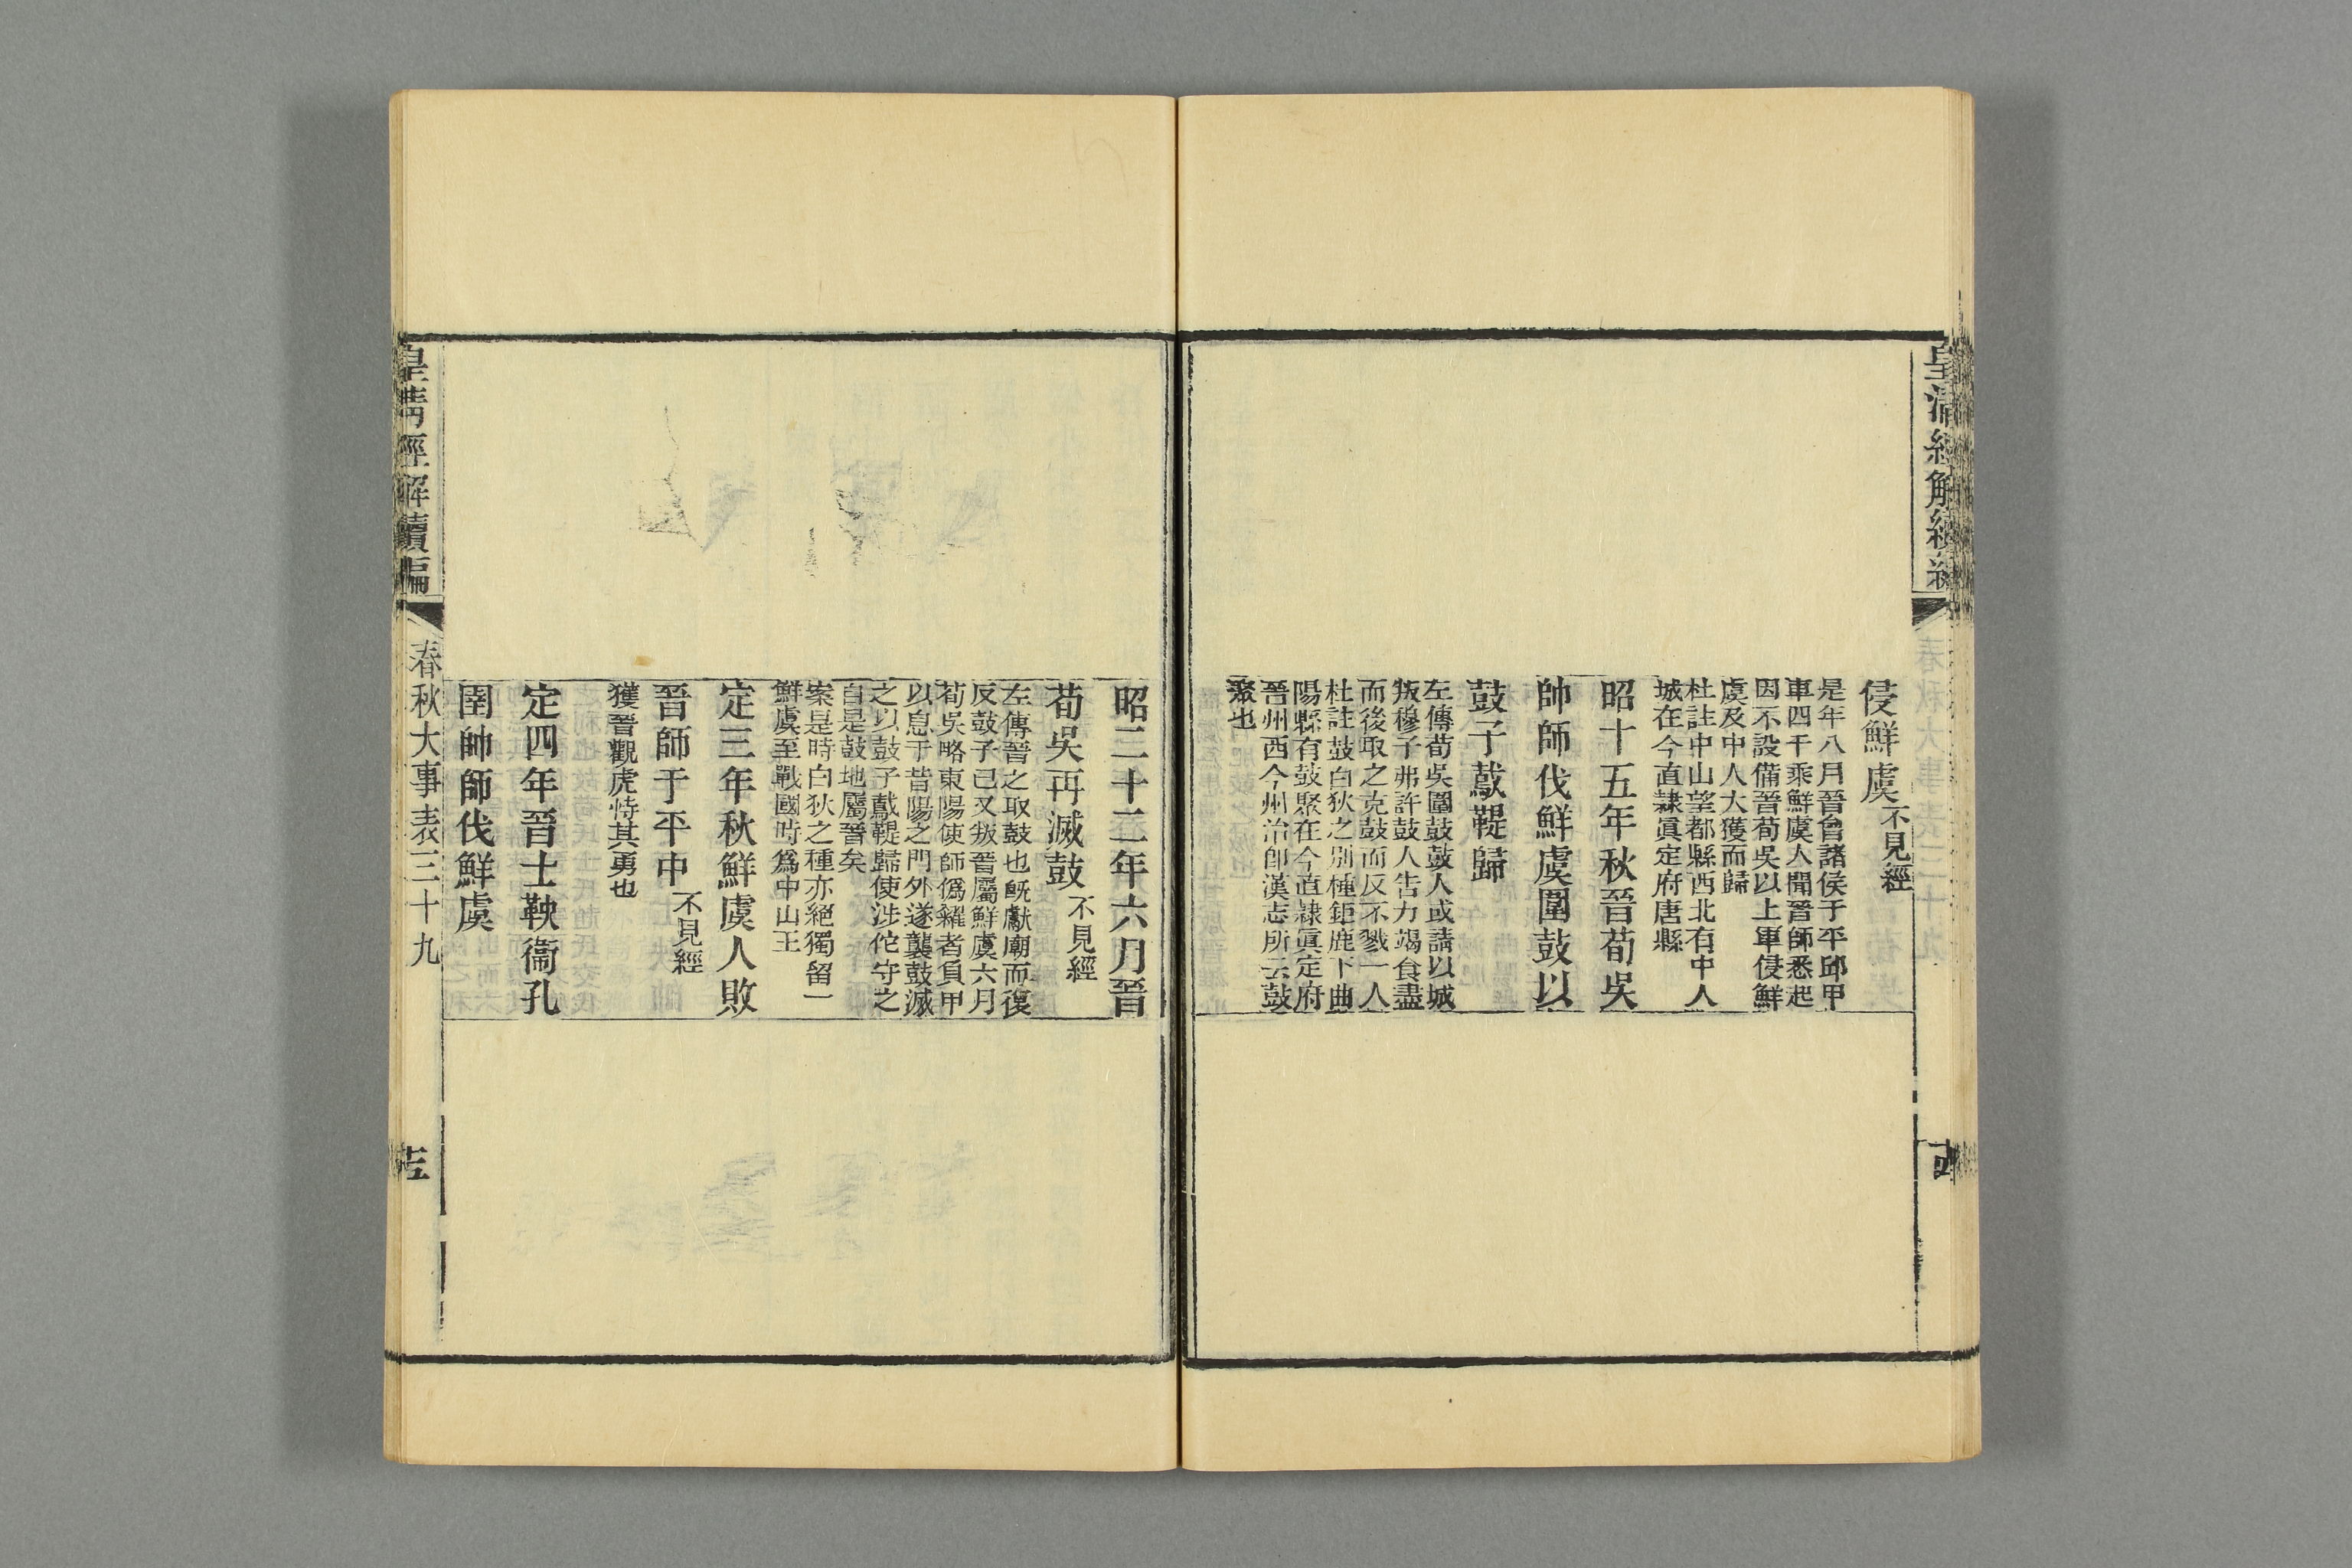 皇清經解續編
侵鮮虞不見經
是年八月晉會諸侯于平邱甲
車四千乘鮮虞人聞晉師悉起
因不設備晉荀吳以上軍侵鮮
虞及中人大獲而歸
杜註中山望都縣西北有中人
城在今直隸眞定府唐縣
昭十五年秋晉荀吳
帥師伐鮮虞圍鼓以
鼓子䳒鞮歸
左傳荀吳圍鼓鼓人或請以城
叛穆子弗許鼓人告力竭食盡
而後取之克鼓而反不戮一人
杜註鼓白狄之別種鉅鹿下曲
陽縣有鼓聚在今直隸眞定府
晉州西今州治卽漢志所云鼓
聚也
昭二十二年六月晉
荀吳再滅鼓不見經
左傳晉之取鼓也旣獻廟而復
反鼓子已又叛晉屬鮮虞六月
荀吳略東陽使師僞糴者負甲
以息于昔陽之門外遂襲鼓滅
之以鼓子䳒鞮歸使涉佗守之
自是鼓地屬晉矣
案是時白狄之種亦絕獨留一
鮮虞至戰國時爲中山王
定三年秋鮮虞人敗
晉師于平中不見經
獲晉觀虎恃其勇也
定四年晉士鞅衞孔
圉帥師伐鮮虞
皇清經解續編
春秋大事表三十九